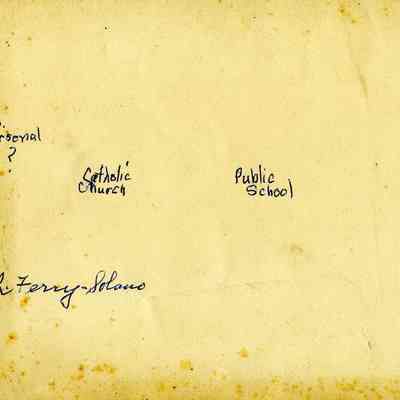 rsenal
?
Catholic
Church
Public
School
Ferry-Solano